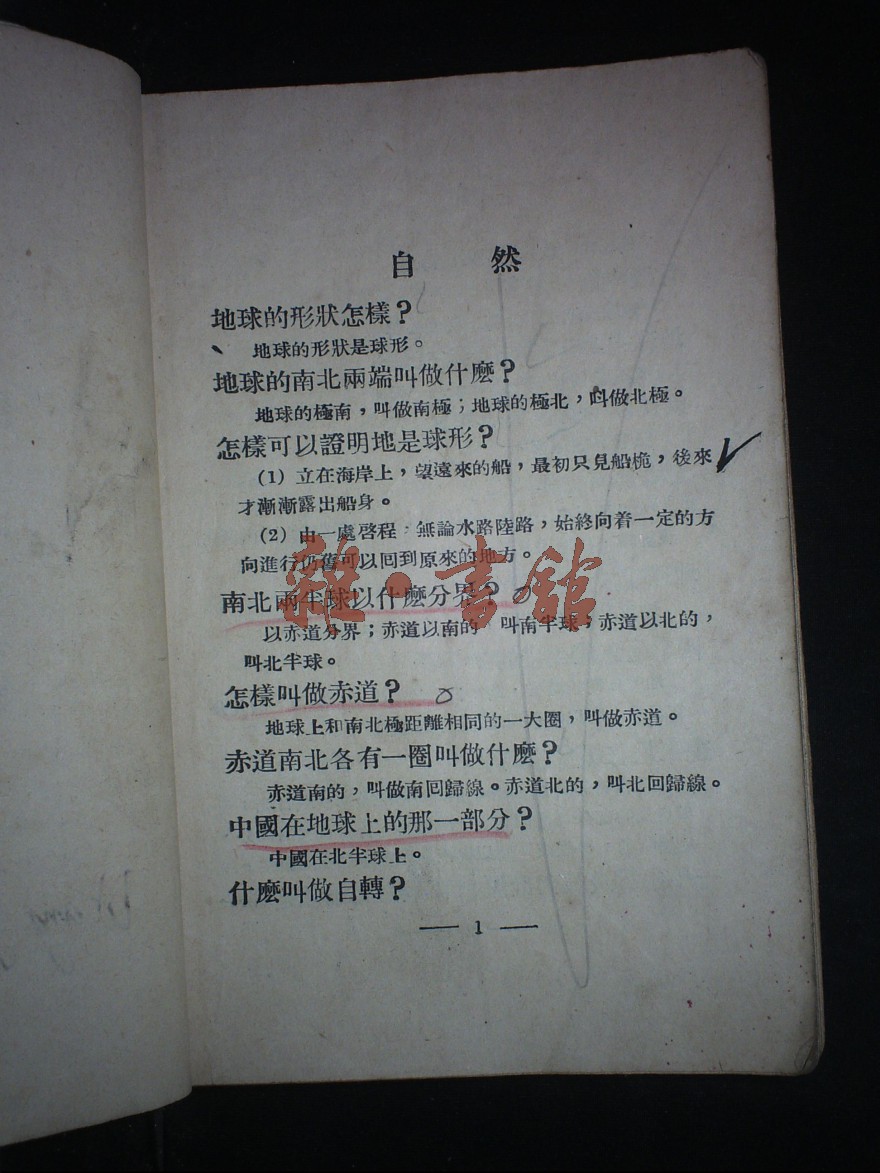 自 然
地球的形狀怎樣？
地球的形狀是球形。
地球的南北兩端叫做什麽？
地球的極南，叫做南極；地球的極北，叫做北極。
怎樣可以證明地是球形？
(1) 立在海岸上，望遠來的船，最初只見船桅，後來
才漸漸露出船身。
(2) 由一處啓程，無論水路陸路，始終向着一定的方
向進行仍舊可以囘到原來的地方。
南北兩半球以什麽分界？
以赤道分界；赤道以南的 叫南半球；赤道以北的，
叫北半球。
怎樣叫做赤道？
地球上和南北極距離相同的一大圈，叫做赤道。
赤道南北各有一圈叫做什麽？
赤道南的，叫做南囘歸線。赤道北的，叫北回歸線。
中國在地球上的那一部分？
中國在北半球上。
什麽叫做自轉？
— 1 —
雜·書館